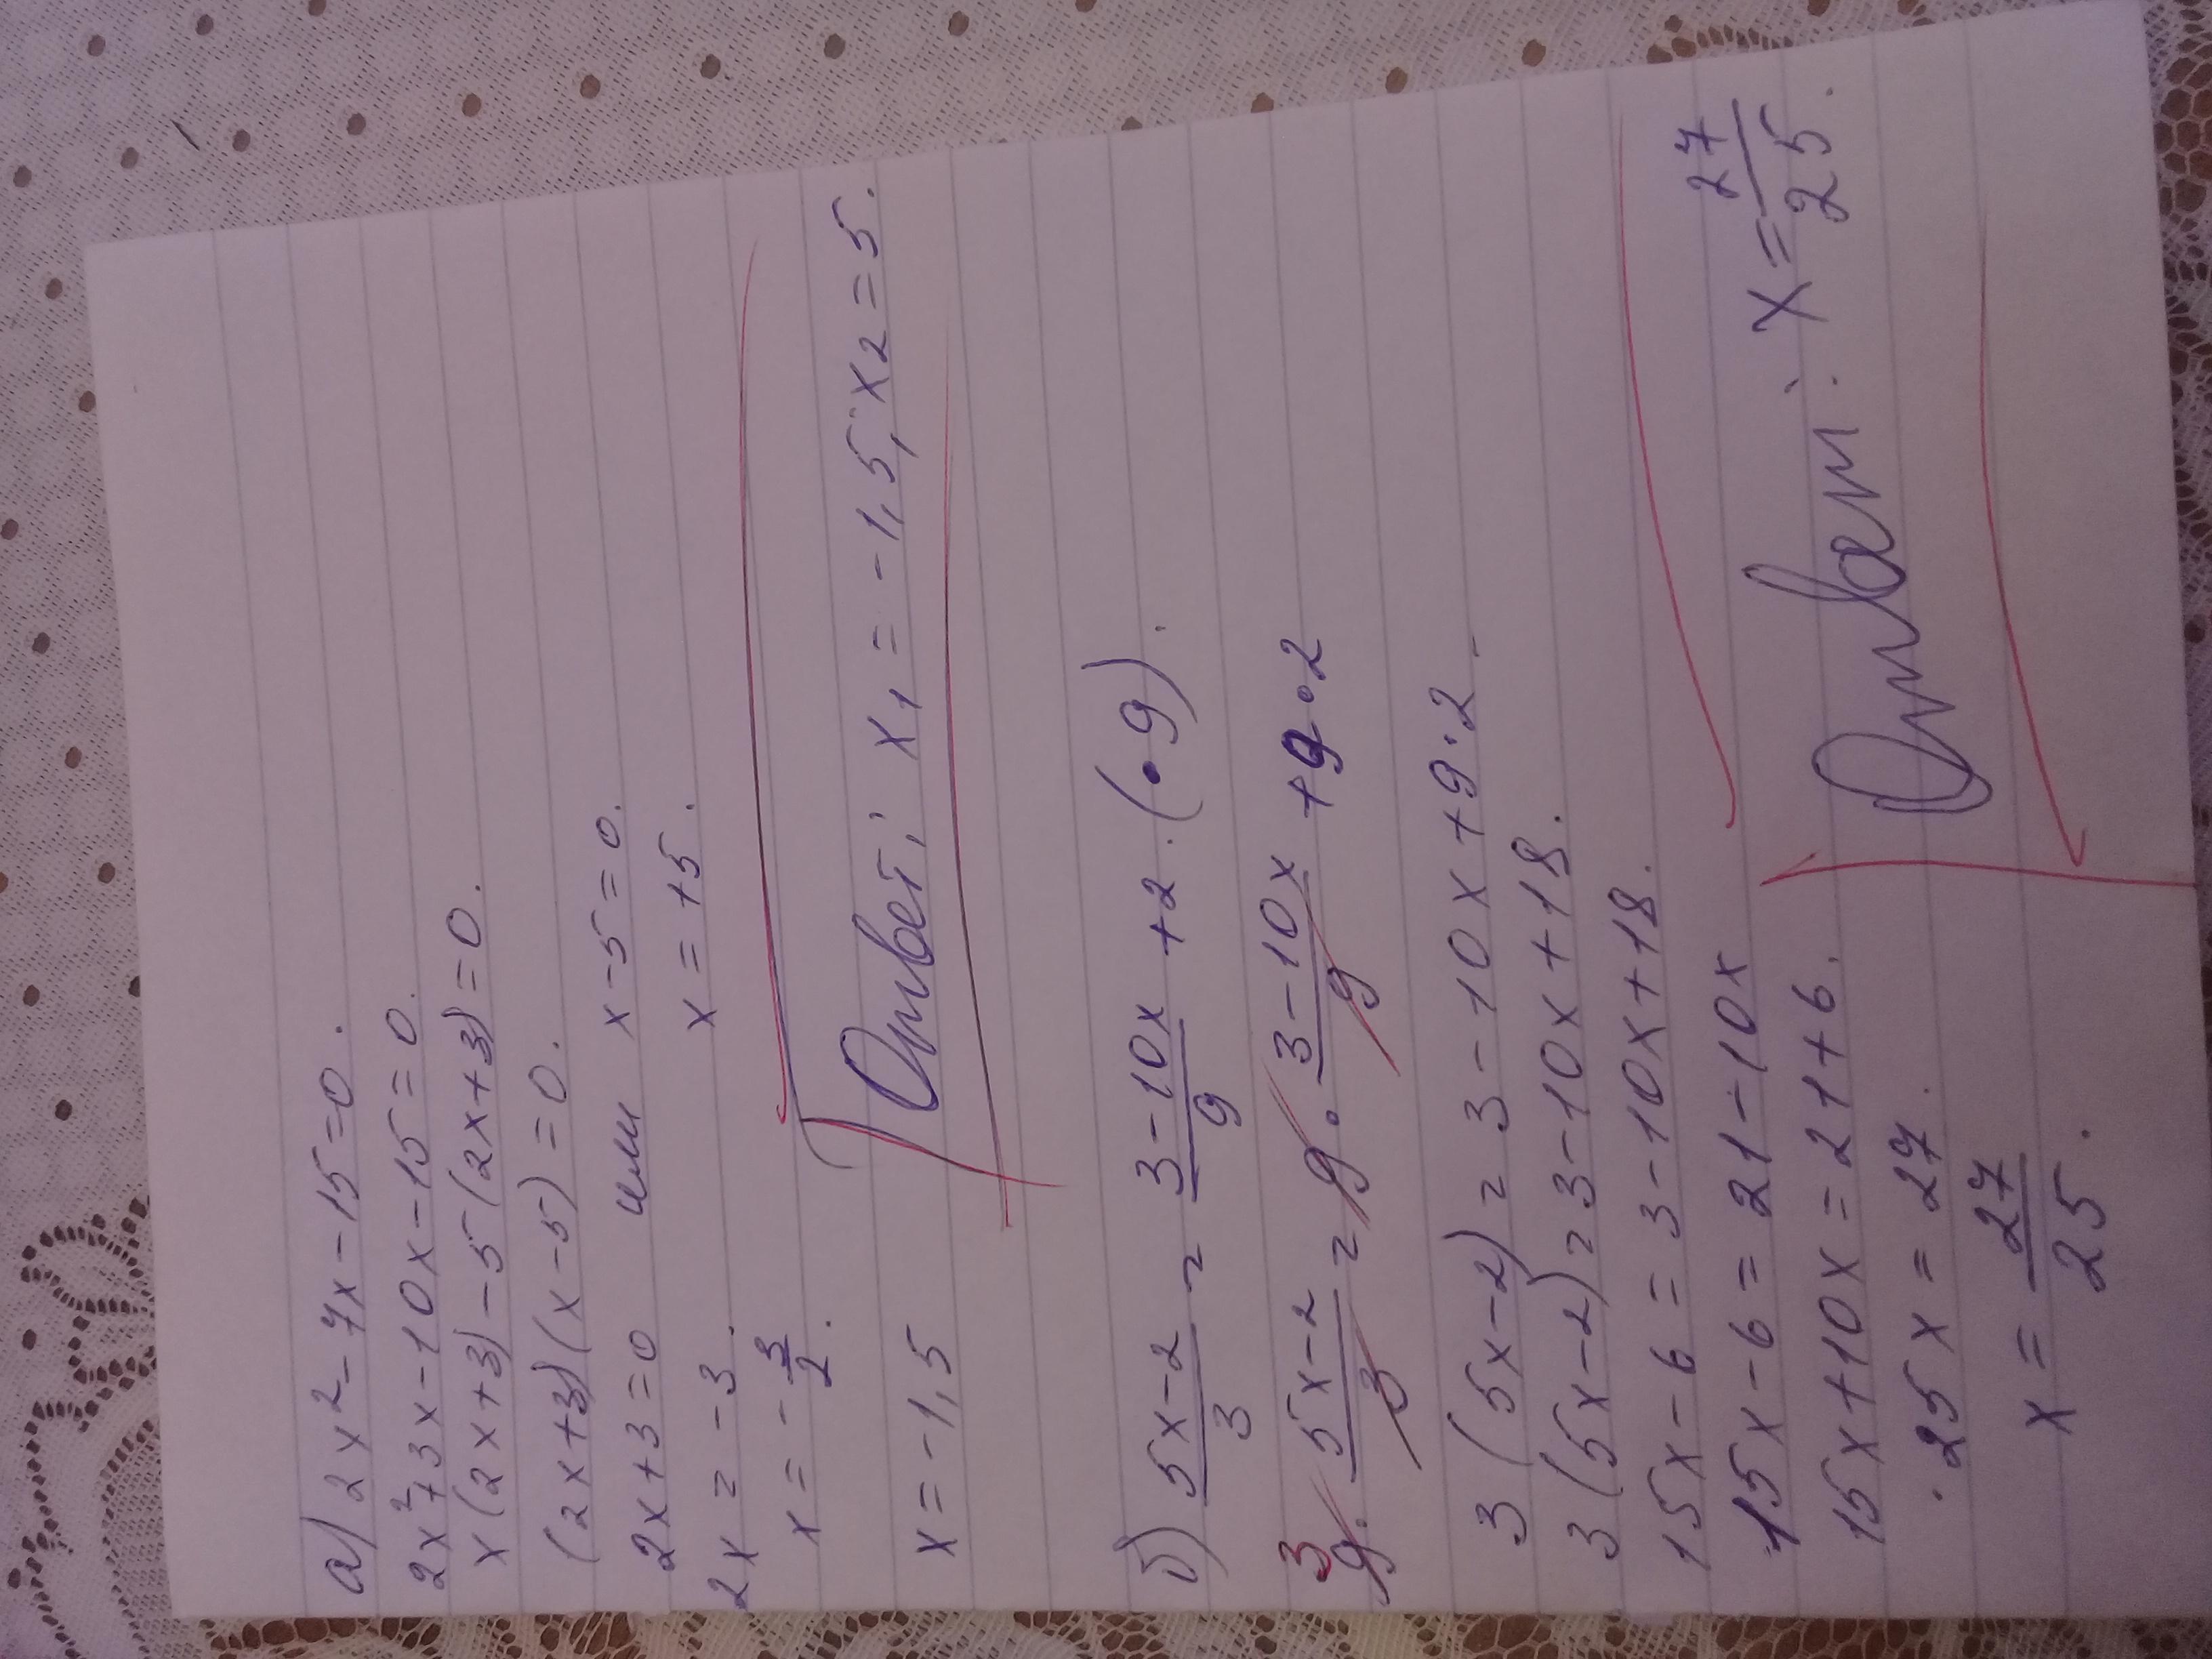 а) 2x² - 7x - 15 = 0.
2x² + 3x - 10x - 15 = 0.
x(2x+3) - 5(2x+3) = 0.
(2x+3)(x-5) = 0.
2x+3=0 или x-5=0.
2x = -3. x = +5.
x = -3/2.
x = -1,5
Ответ: x₁ = -1,5, x₂ = 5.
б) (5x-2)/3 = (3-10x)/9 + 2. (•9).
³9 · (5x-2)/3 = 9 · (3-10x)/9 + 9·2
3(5x-2) = 3-10x+9·2.
3(5x-2) = 3-10x+18.
15x-6 = 3-10x+18.
15x-6 = 21-10x
15x+10x = 21+6.
25x = 27.
x = 27/25.
Ответ: x = 27/25.